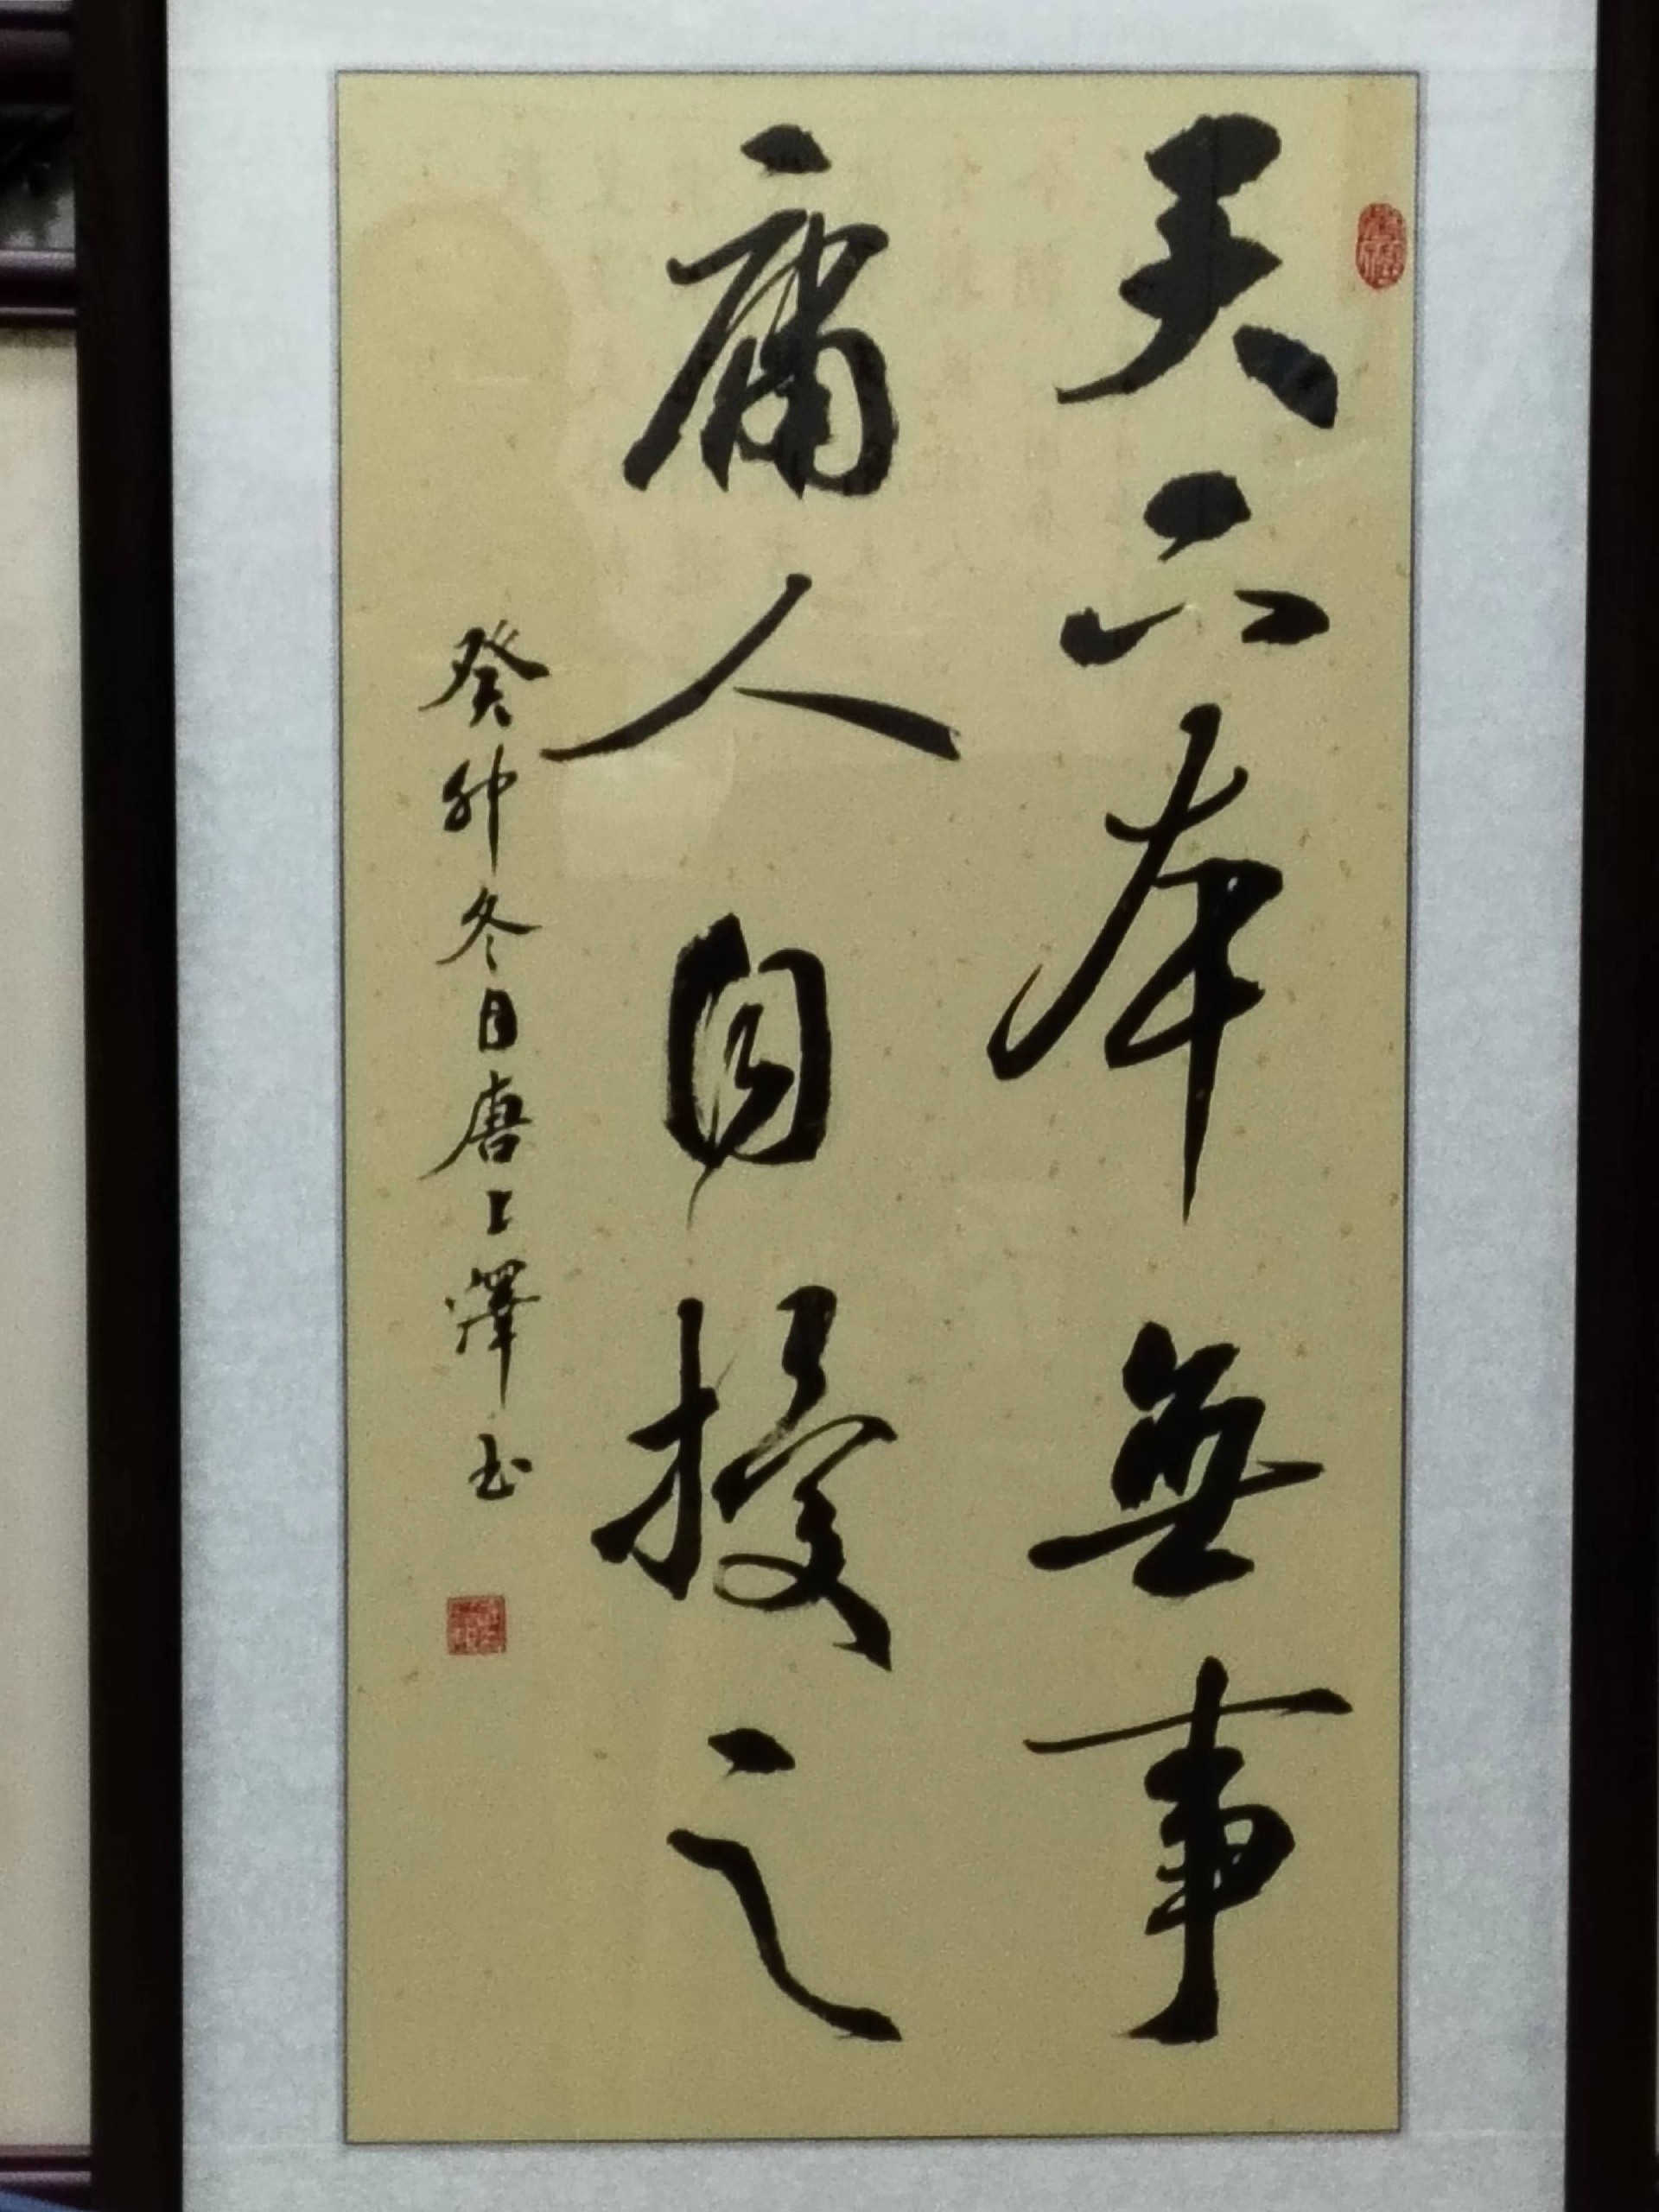 天下本無事
庸人自擾之
癸卯冬日唐上澤书